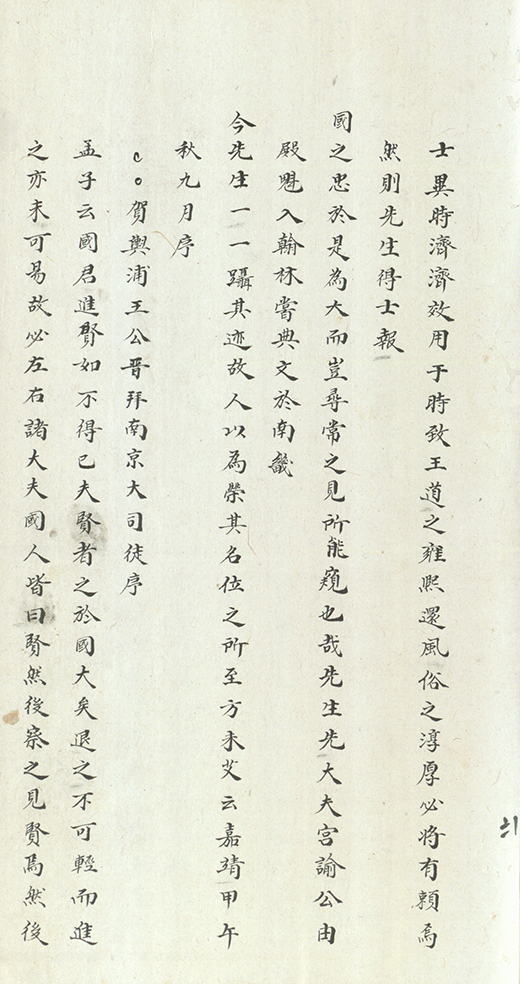 士異時濟濟效用于時致王道之雍熙還風俗之淳厚必將有賴焉
然則先生得士報
國之忠於是為大而豈尋常之見所能窺也哉先生先大夫宮諭公由
殿魁入翰林嘗典文於南畿
今先生一一躡其迹故人以為榮其名位之所至方未艾云嘉靖甲午
秋九月序
賀輿浦王公晉拜南京大司徒序
孟子云國君進賢如不得已夫賢者之於國大矣退之不可輕而進
之亦未可易故必左右諸大夫國人皆曰賢然後察之見賢焉然後